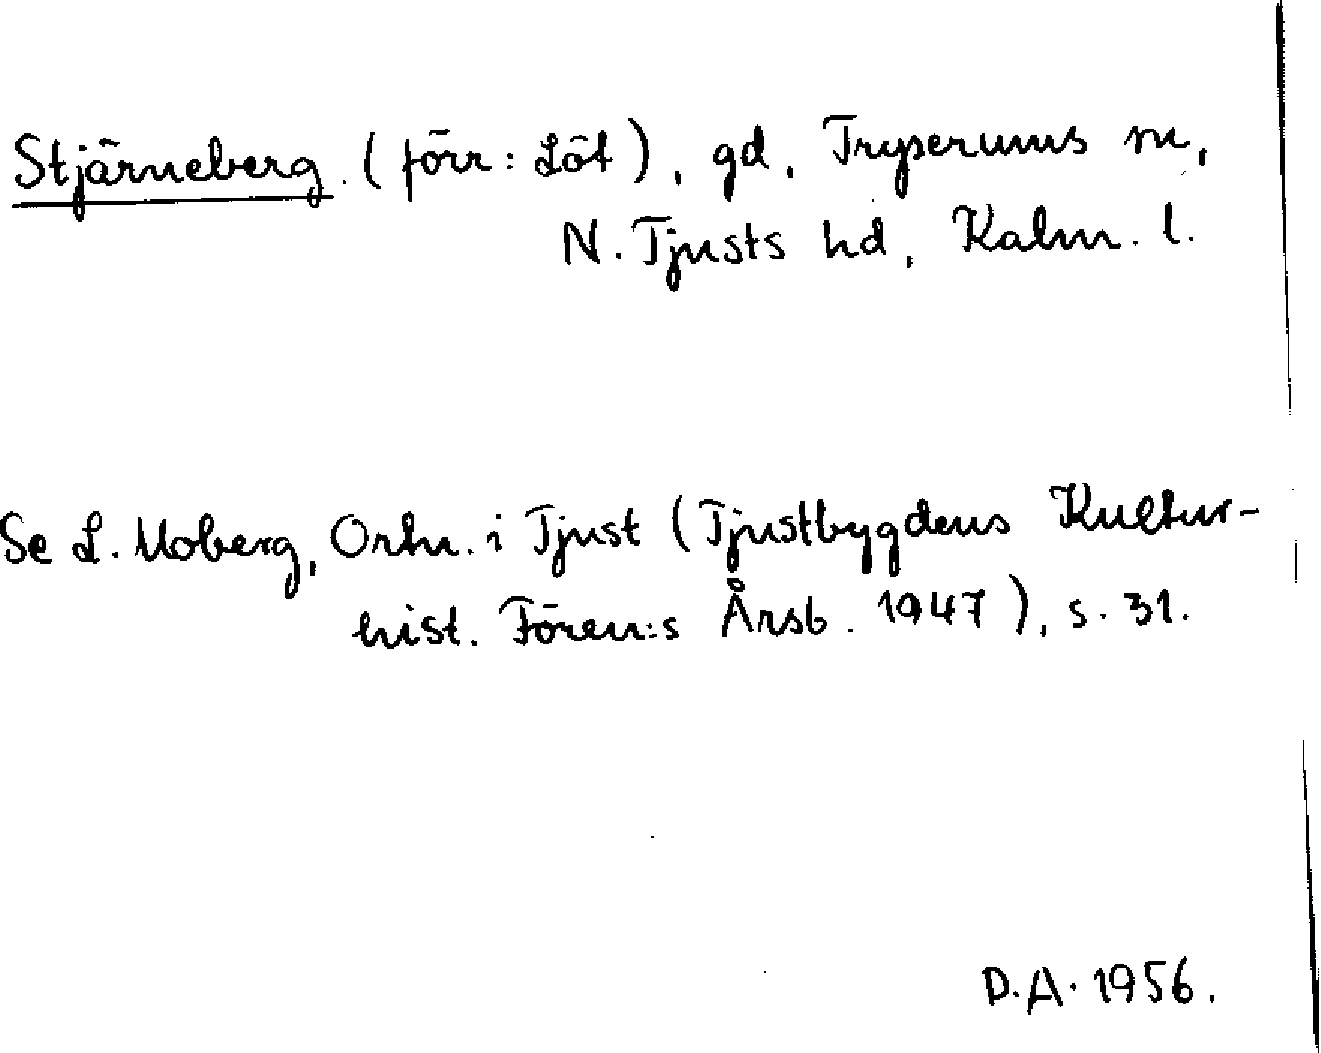 Stjärneberg. (förr: Löt), gd, Tryserums sn,
N. Tjusts hd, Kalm. l.
Se L. Moberg, Ortn. i Tjust (Tjustbygdens Kultur-
hist. Fören:s Årsb. 1947), s. 31.
D.A. 1956.